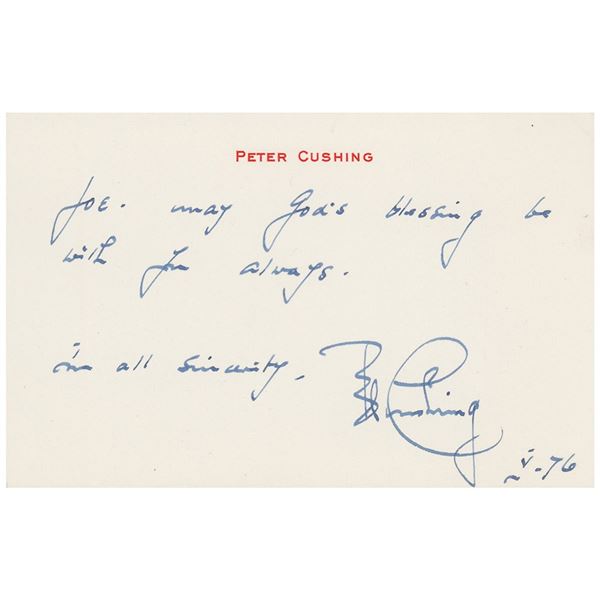 PETER CUSHING
Joe. may God's blessing be
with you always.
in all sincerity,
Peter Cushing
v.-76